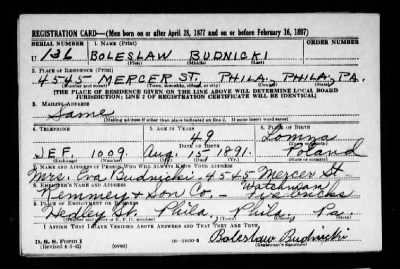 REGISTRATION CARD—(Men born on or after April 28, 1877 and on or before February 16, 1897)
SERIAL NUMBER 1. NAME (Print) ORDER NUMBER
U 136 BOLESLAW BUDNICKI
(First) (Middle) (Last)
2. PLACE OF RESIDENCE (Print)
4545 MERCER ST. PHILA. PHILA. PA.
(Number and street) (Town, township, village, or city) (County) (State)
[THE PLACE OF RESIDENCE GIVEN ON THE LINE ABOVE WILL DETERMINE LOCAL BOARD
JURISDICTION; LINE 2 OF REGISTRATION CERTIFICATE WILL BE IDENTICAL]
3. MAILING ADDRESS
Same
[Mailing address if other than place indicated on line 2. If same insert word same]
4. TELEPHONE 5. AGE IN YEARS 6. PLACE OF BIRTH
49 Lomna
DATE OF BIRTH
JEF. 1009. Aug. 15 1891. Poland
(Exchange) (Number) (Mo.) (Day) (Yr.) (State or country)
7. NAME AND ADDRESS OF PERSON WHO WILL ALWAYS KNOW YOUR ADDRESS
Mrs. Eva Budnicki - 4545 Mercer St
8. EMPLOYER'S NAME AND ADDRESS Watchman
& Son Co. -
9. PLACE OF EMPLOYMENT OR BUSINESS
Hedley St. Phila. Phila. Pa.
(Number and street or R. F. D. number) (Town) (County) (State)
I AFFIRM THAT I HAVE VERIFIED ABOVE ANSWERS AND THAT THEY ARE TRUE.
D. S. S. Form 1
(Revised 4-1-42) (over) Boleslaw Budnicki